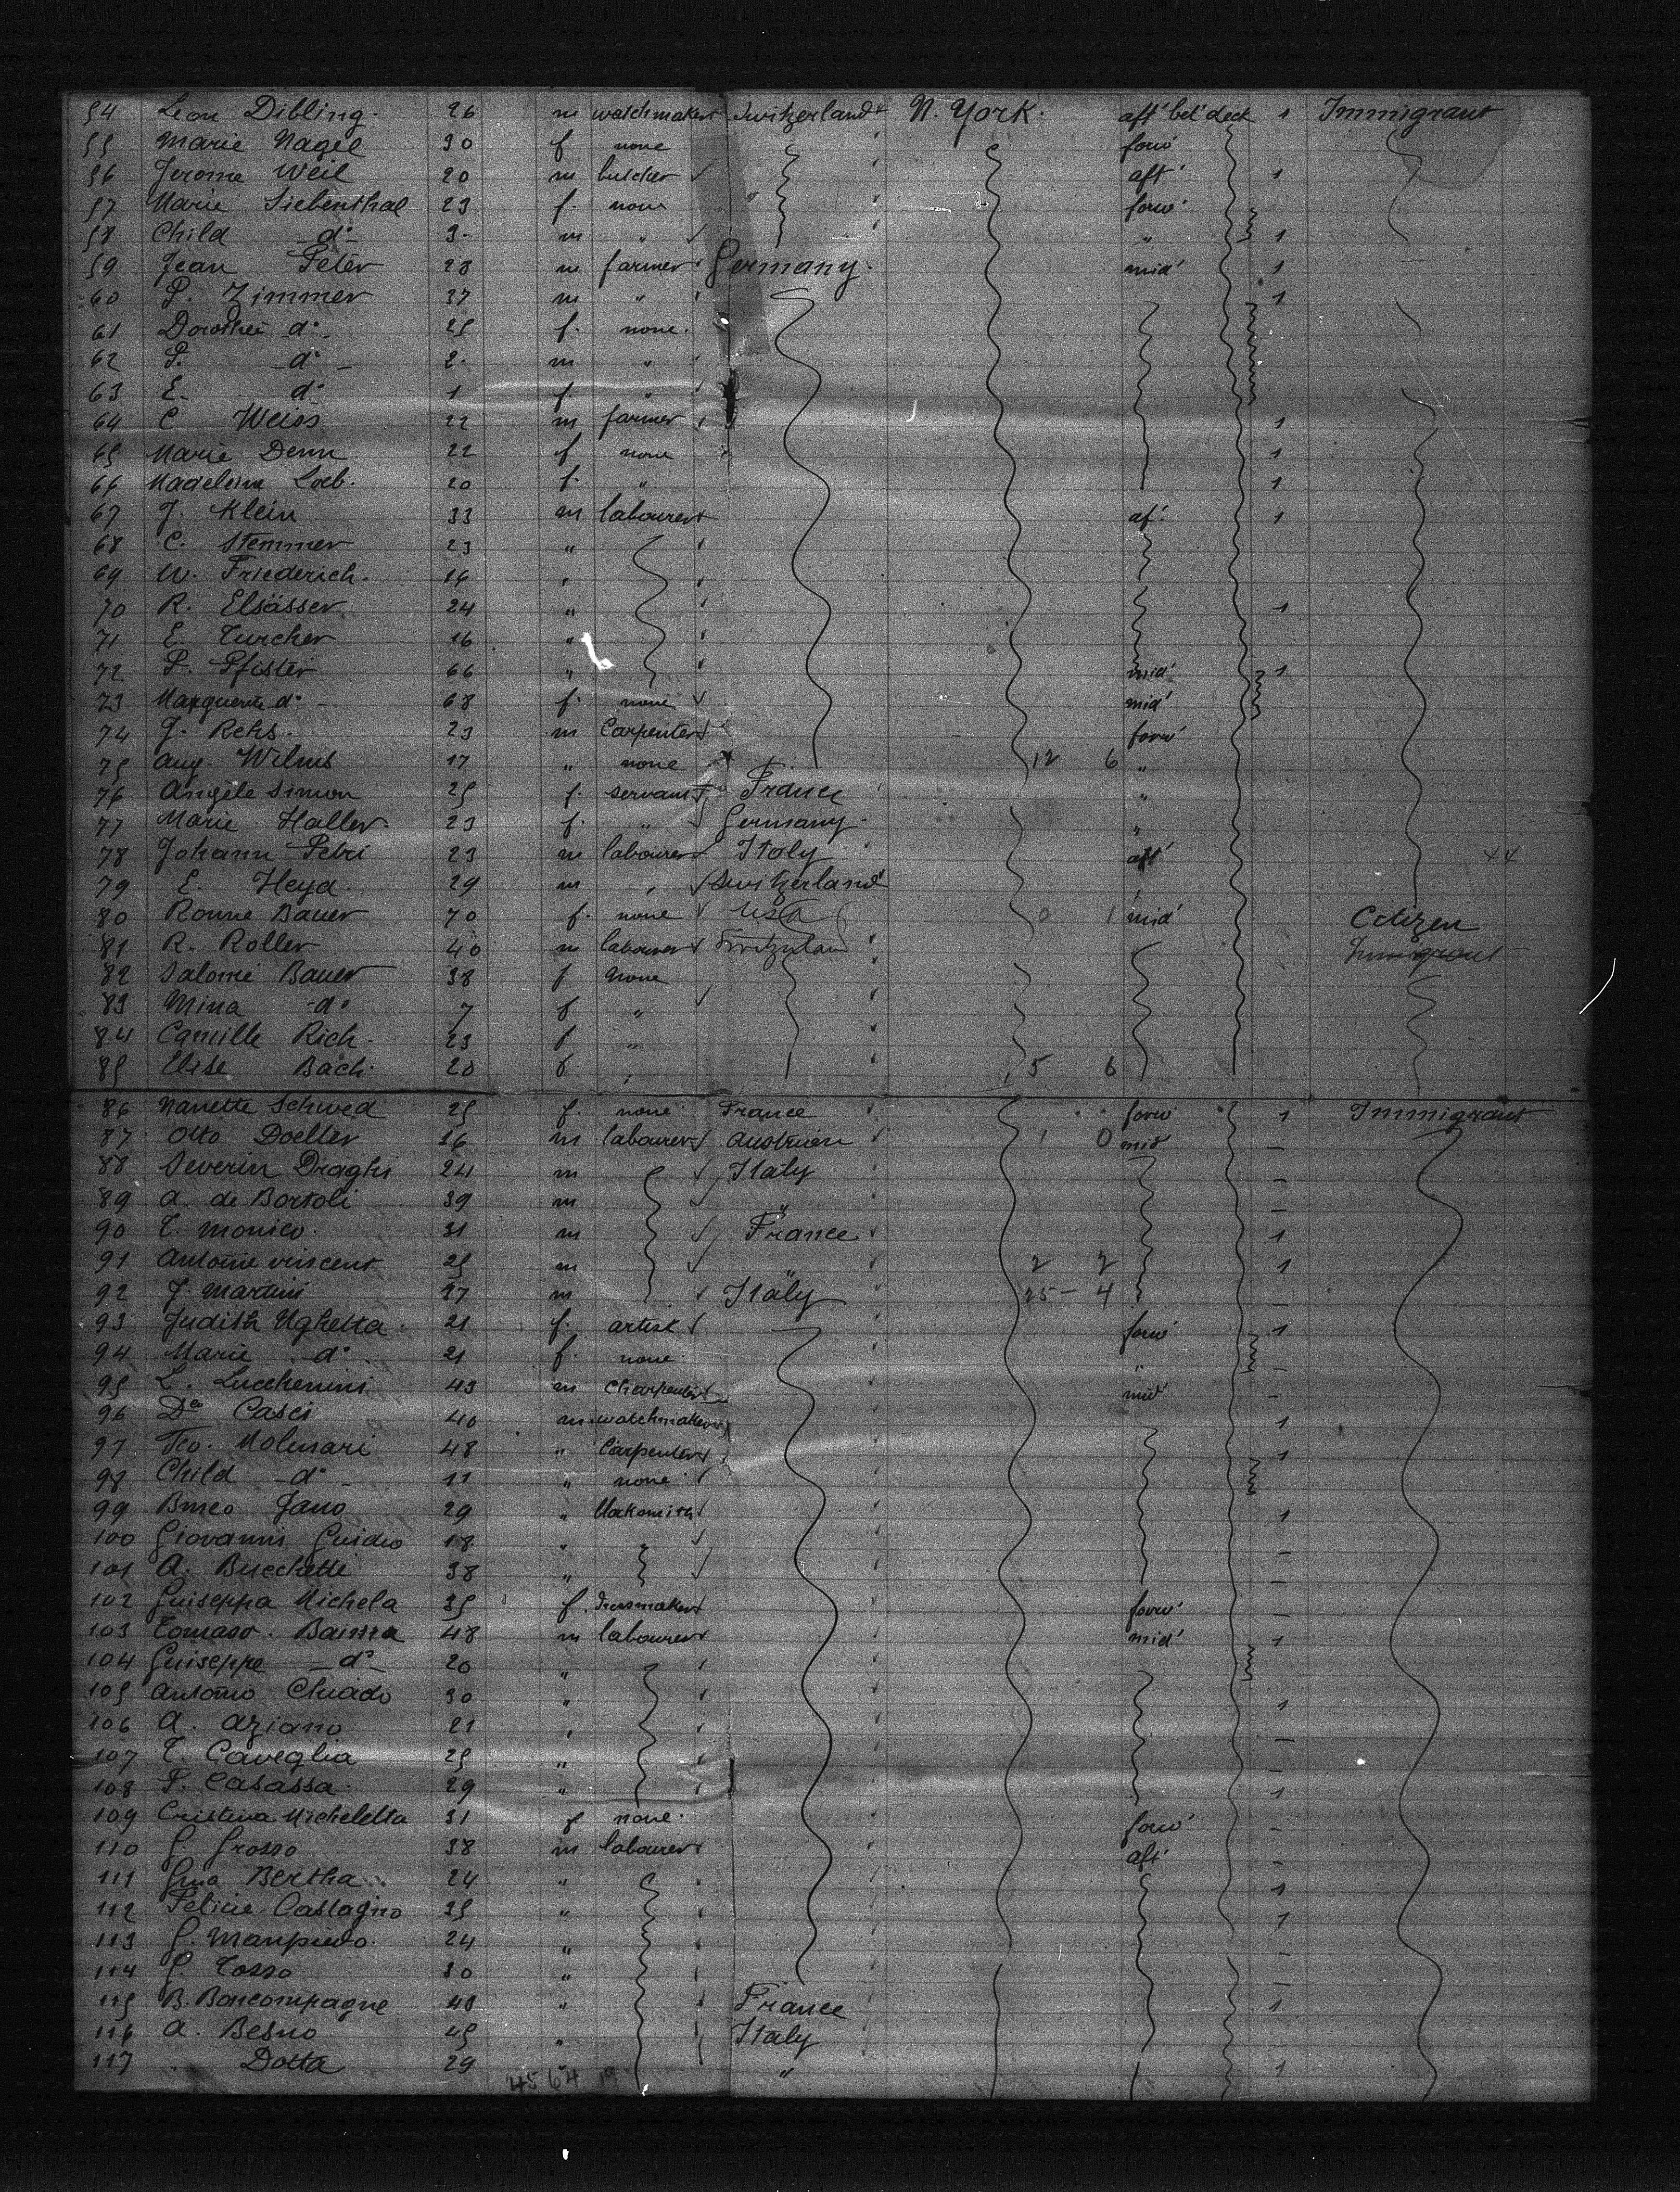 54 Leon Dibling. 26 m watchmaker Switzerland N. York. aft' bet' deck 1 Immigrant
55 Marie Nagel 30 f none forw'
56 Jerome Weil 20 m butcher aft' 1
57 Marie Siebenthal 23 f. none " forw'
58 Child d° 3. m " " 1
59 Jean Peter 28 m farmer Germany. mid' 1
60 P. Zimmer 37 m " 1
61 Dorothée d° 25 f. none.
62 P. d° 2. m "
63 E. d° 1 f "
64 C Weiss 22 m farmer 1
65 Marie Denn 22 f none 1
66 Madeleine Loeb. 20 f. " 1
67 J. Klein 33 m labourer af' 1
68 C. Stemmer 23 "
69 W. Friederich. 16 "
70 R. Elsässer 24 " 1
71 E. Turcher 16 "
72 P. Pfister 66 " mid' 1
73 d° 68 f. none mid'
74 J. Rehs. 23 m Carpenter forw'
75 Aug. Wilms 17 " none 12 6 "
76 Angèle Simon 25 f. servant France "
77 Marie Haller. 23 f. " Germany. "
78 Johann Petri 23 m labourer Italy aft' 44
79 E. Heyd. 29 m " Switzerland
80 Ronne Bauer 70 f. none USA 0 1 mid' Citizen
81 R. Roller 40 m labourer Switzerland Immigrant
82 Salomé Bauer 38 f none
83 Mina d° 7 f "
84 Camille Rich. 23 f "
85 Elise Bach. 20 f " 5 6
86 Nanette Schwed 25 f. none France forw' 1 Immigrant
87 Otto Doeller 26 m labourer Austrian 1 0 mid' –
88 Severin Draghi 24 m Italy –
89 A. de Bortoli 39 m " –
90 T. Monico. 31 m France 1
91 Antoine Vincent 25 m " 2 2 1
92 J. Martini 27 m Italy 25 – 4 –
93 Judith Ughetta. 21 f. artist forw' 1
94 Marie d° 21 f. none " –
95 L. Luccherini 43 m Charpenter mid' –
96 Casci 40 m. watchmaker 1
97 Molinari 48 " Carpenter 1
98 Child d° 11 " none
99 29 " blacksmith 1
100 Giovanni Guidio 18 " –
101 A. Bucchetti 38 " –
102 Guiseppa Michela 35 f. dressmaker forw' –
103 Tomaso. Baima 48 m labourer mid' 1
104 Guiseppe d° 20 "
105 Antonio Chiado 30 " 1
106 A. Aziano 21 " –
107 T. Caveglia 25 " –
108 P. Casassa. 29 " 1
109 Cristina Micheletta 31 f none. forw' –
110 G. Grosso 38 m labourer aft' –
111 Bertha 24 " 1
112 Felicie Castagno 35 " 1
113 G. 24 " –
114 G. Tosso 30 " –
115 B. Boncompagne 43 " France 1
116 A. Besno 45 " Italy
117 Dotta 29 " " 1